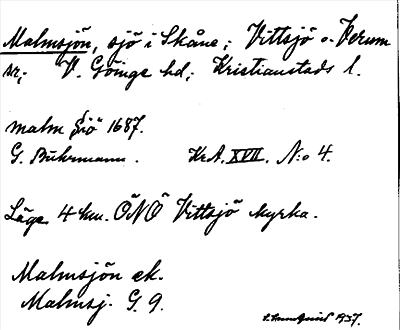 Malmsjön, sjö i Skåne; Vittsjö o. Verum
sn; V. Göinge hd; Kristianstads l.
malm Siö" 1687.
G. Buhrmann. KrA. XVII. N:o 4.
Läge 4 km. ÖNÖ Vittsjö kyrka.
Malmsjön ek.
Malmsj. G. 9.
1937.